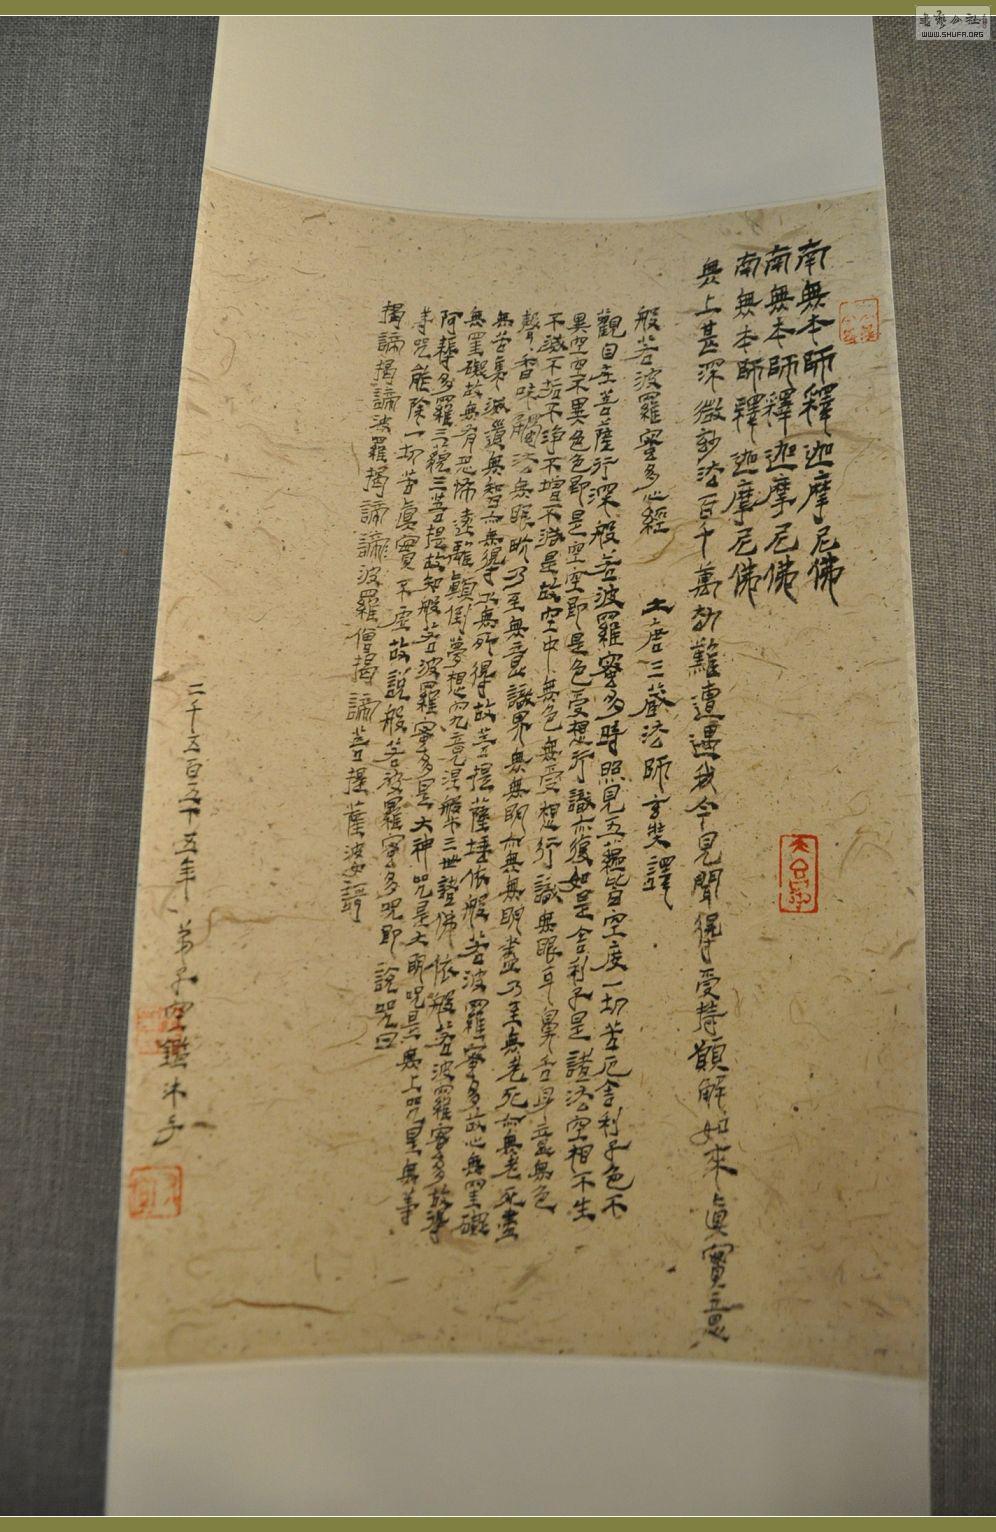 南無本師釋迦摩尼佛
南無本師釋迦摩尼佛
南無本師釋迦摩尼佛
無上甚深微妙法百千萬劫難遭遇我今見聞得受持願解如來真實意
般若波羅蜜多心經 大唐三藏法師玄奘譯
觀自在菩薩行深般若波羅蜜多時照見五蘊皆空度一切苦厄舍利子色不
異空空不異色色即是空空即是色受想行識亦復如是舍利子是諸法空相不生
不滅不垢不淨不增不減是故空中無色無受想行識無眼耳鼻舌身意無色
聲香味觸法無眼界乃至無意識界無無明亦無無明盡乃至無老死亦無老死盡
無苦集滅道無智亦無得以無所得故菩提薩埵依般若波羅蜜多故心無罣礙
無罣礙故無有恐怖遠離顛倒夢想究竟涅般三世諸佛依般若波羅蜜多故得
阿耨多羅三藐三菩提故知般若波羅蜜多是大神咒是大明咒是無上咒是無等
等咒能除一切苦真實不虛故說般若波羅蜜多咒即說咒曰
揭諦揭諦波羅揭諦波羅僧揭諦菩提薩婆訶
二千五百五十五年 弟子空鑑沐手
书法公社
WWW.SHUFA.ORG